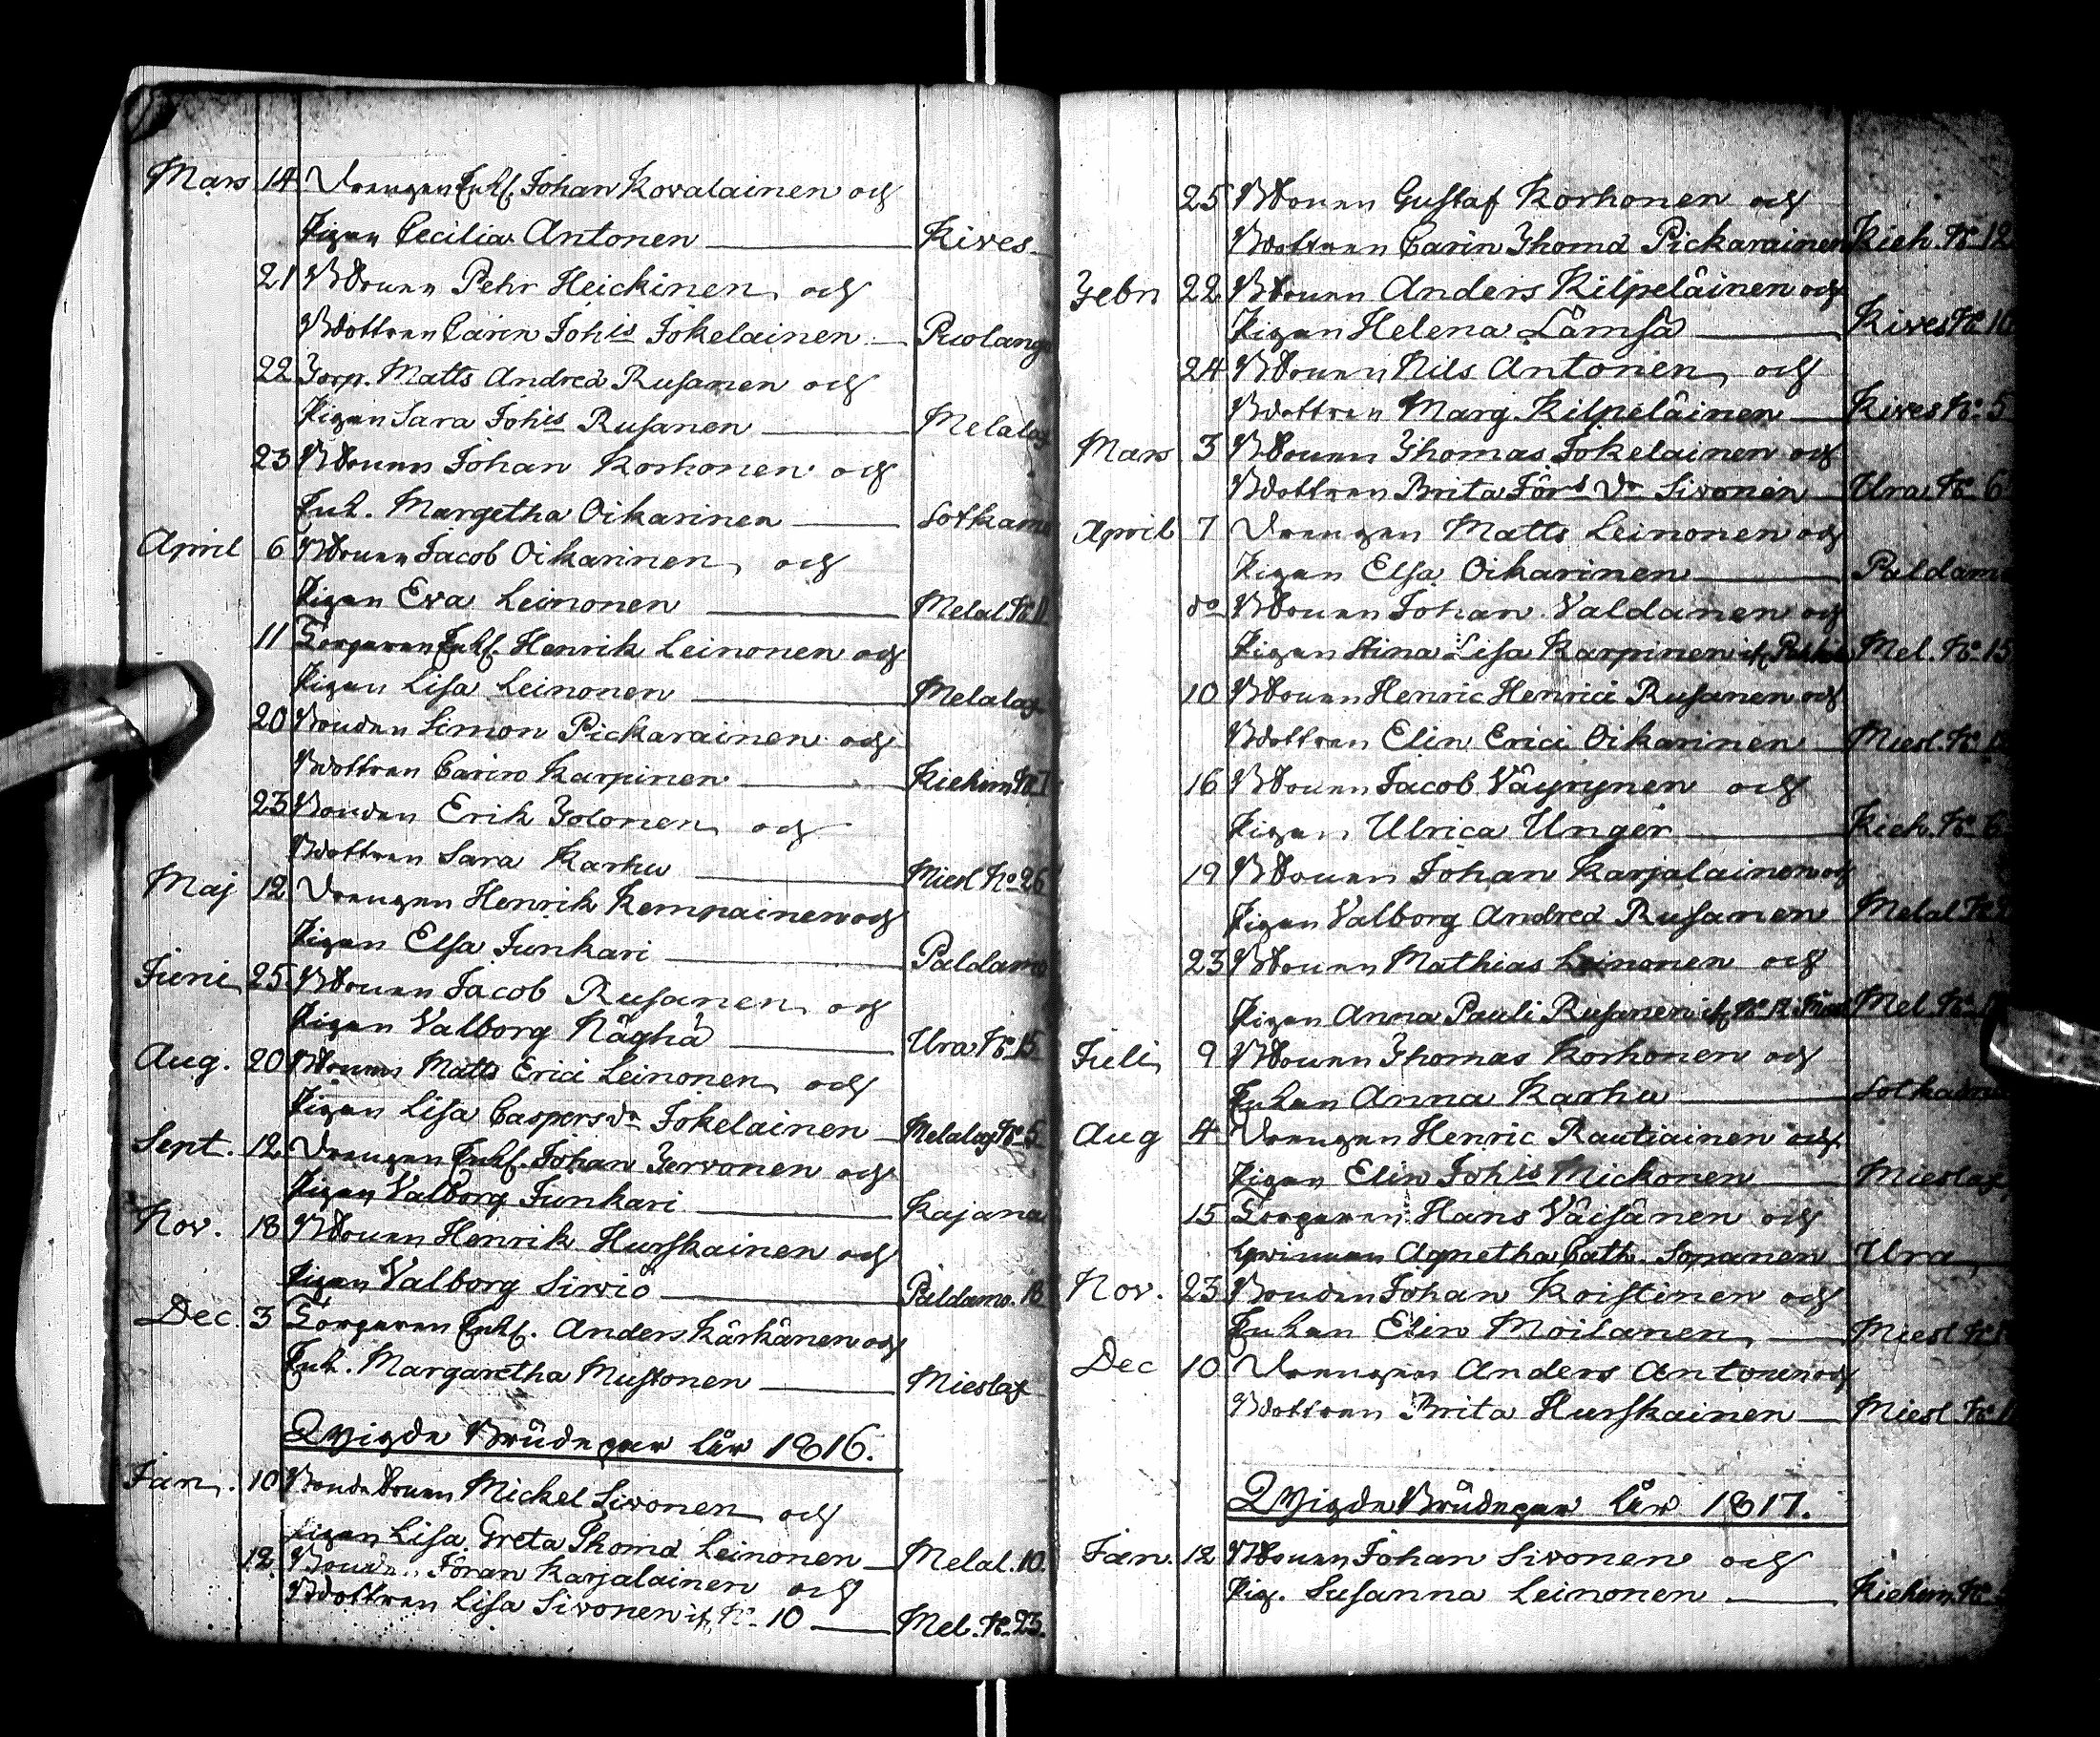 Mars 14 Drengen Enkl. Johan Kovalainen och
Pigan Cecilia Antonen — Kives
21 BSonen Pehr Heickinen och
Bdottren Carin Joh:is Jokelainen — Puolang
22 Torp. Matts Andreæ Rusanen och
Pigan Sara Joh:is Rusanen — Melalax
23 BSonen Johan Korhonen och
Enk. Margetha Oikarinen — Sotkamo
April 6 BSonen Jacob Oikarinen och
Pigan Eva Leinonen — Melal. No 11
11 Torparen Enkl. Henrik Leinonen och
Pigan Lisa Leinonen — Melalax
20 Bonden Simon Pickarainen och
Bdottren Carin Karpinen — Kiehim No 7
23 Bonden Erik Tolonen och
Bdottren Sara Karhu — Miesl No 26
Maj 12 Drengen Henrik Kempainen och
Pigan Elsa Junkari — Paldamo
Juni 25 BSonen Jacob Rusanen och
Pigan Valborg Näghä — Ura No 15
Aug. 20 BSonen Matts Erici Leinonen och
Pigan Lisa Caspersdr Jokelainen — Melalax No 5
Sept. 12 Drengen Enkl. Johan Tervonen och
Pigan Valborg Junkari — Kajana
Nov. 18 BSonen Henrik Hurskainen och
Pigan Valborg Sirviö — Paldamo. 18
Dec. 3 Torparen Enkl. Anders Kärkänen och
Enk. Margaretha Mustonen — Mieslax
Wigde Brudepar år 1816.
Jan. 10 BondeSonen Mickel Sivonen och
Pigan Lisa Greta Thomæ Leinonen — Melal. 10.
12 Bonde Göran Karjalainen och
Bdottren Lisa Sivonen if. No 10 — Mel. No 23.
25 BSonen Gustaf Korhonen och
Bdottren Carin Thomæ Pickarainen Kieh. No 12
Febr 22 BSonen Anders Kilpeläinen och
Pigan Helena Lämsä — Kives No 10
24 BSonen Nils Antonen och
Bdottren Marg. Kilpeläinen — Kives No 5
Mars 3 BSonen Thomas Jokelainen och
Bdottren Brita Görs Dr Sivonen — Ura No 6
April 7 Drengen Matts Leinonen och
Pigan Elsa Oikarinen — Paldamo
do BSonen Johan Valdanen och
Pigan Stina Lisa Karpinen if. Mel. No 15
10 BSonen Henric Henrici Rusanen och
Bdottren Elin Erici Oikarinen — Miesl. No
16 BSonen Jacob Väyrynen och
Pigan Ulrica Unger — Kieh. No 6
19 BSonen Johan Karjalainen och
Pigan Valborg Andreæ Rusanen Melal No
23 BSonen Mathias Leinonen och
Pigan Anna Pauli Rusanen if. No Mel No
Juli 9 BSonen Thomas Korhonen och
Enkan Anna Karhu — Sotkamo
Aug 4 Drengen Henric Rautiainen och
Pigan Elin Joh:is Mickonen — Mieslax
15 Torparen Hans Väisänen och
Qwinnan Agnetha Cath. Sopanen Ura
Nov. 23 Bonden Johan Koistinen och
Enkan Elin Moilanen — Miesl No
Dec 10 Drengen Anders Antonen och
Bdottren Brita Hurskainen — Miesl. No
Wigde Brudepar år 1817.
Jan. 12 BSonen Johan Sivonen och
Pig. Susanna Leinonen — Kiehim. No